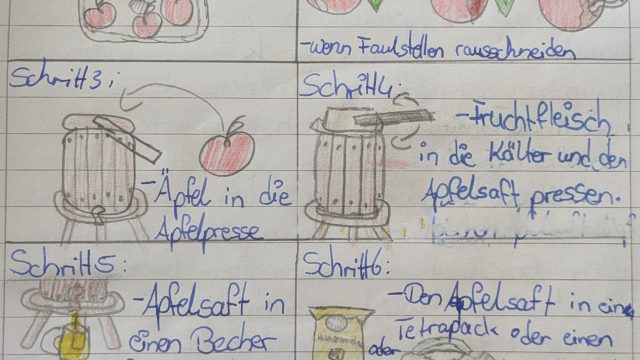 -wenn Faulstellen rausschneiden
Schritt 3:
-Äpfel in die
Apfelpresse
Schritt 4:
-Fruchtfleisch
in die Kälter und den
Apfelsaft pressen.
Schritt 5:
-Apfelsaft in
einen Becher
Schritt 6:
-Den Apfelsaft in ein
Tetrapack oder einen
oder